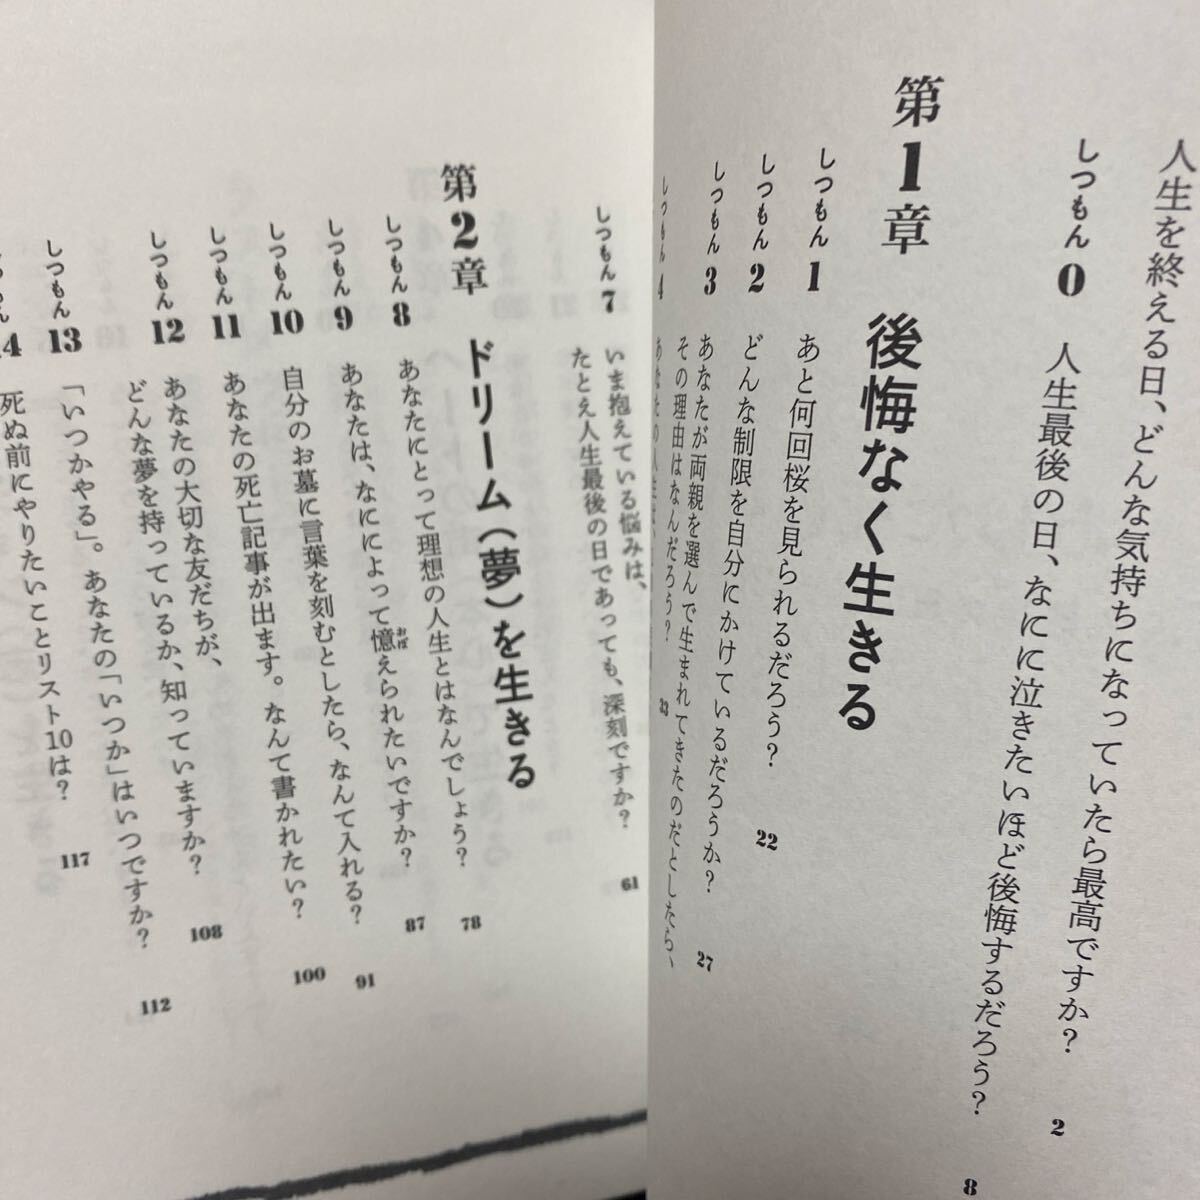 人生を終える日、どんな気持ちになっていたら最高ですか? 2
しつもん0 人生最後の日、なにに泣きたいほど後悔するだろう? 8
第1章 後悔なく生きる
しつもん1 あと何回桜を見られるだろう? 22
しつもん2 どんな制限を自分にかけているだろうか? 27
しつもん3 あなたが両親を選んで生まれてきたのだとしたら、
その理由はなんだろう? 33
しつもん4 あなたの人生は、
しつもん7 いま抱えている悩みは、
たとえ人生最後の日であっても、深刻ですか? 61
第2章 ドリーム(夢)を生きる
しつもん8 あなたにとって理想の人生とはなんでしょう? 78
しつもん9 あなたは、なにによって憶えられたいですか? 87
おぼ
しつもん10 自分のお墓に言葉を刻むとしたら、なんて入れる? 91
しつもん11 あなたの死亡記事が出ます。なんて書かれたい? 100
しつもん12 あなたの大切な友だちが、
どんな夢を持っているか、知っていますか? 108
しつもん13 「いつかやる」。あなたの「いつか」はいつですか? 112
もん4 死ぬ前にやりたいことリスト10は? 117